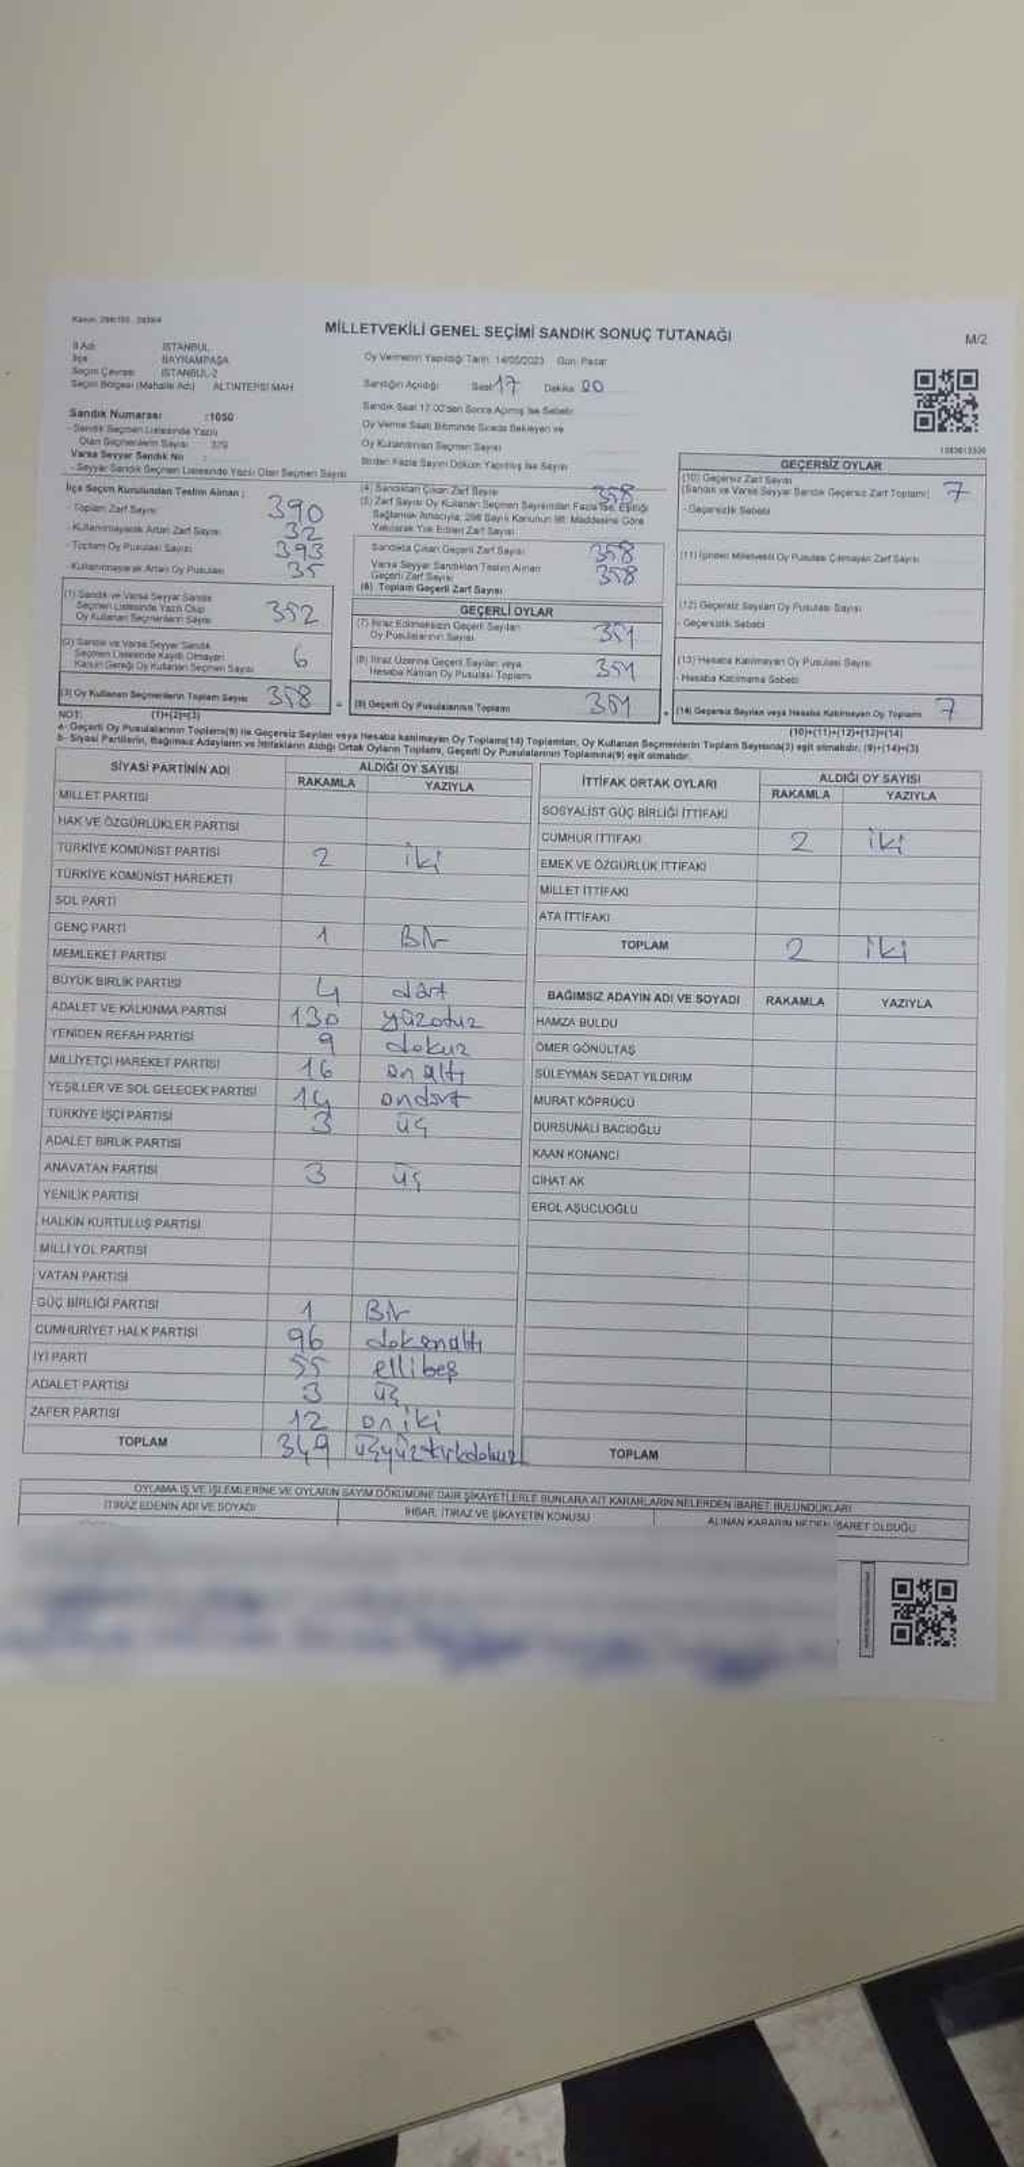 MİLLETVEKİLİ GENEL SEÇİMİ SANDIK SONUÇ TUTANAĞI
M/2
İl Adı : İSTANBUL
İlçe : BAYRAMPAŞA
Seçim Çevresi : İSTANBUL-2
Seçim Bölgesi (Mahalle Adı) : ALTINTEPSİ MAH
Sandık Numarası :1050
- Sandık Seçmen Listesinde Yazılı
Olan Seçmenlerin Sayısı : 379
Varsa Seyyar Sandık No :
- Seyyar Sandık Seçmen Listesinde Yazılı Olan Seçmen Sayısı
Oy Vermenin Yapıldığı Tarih: 14/05/2023 Gün: Pazar
Sandığın Açıldığı Saat 17 Dakika 00
Sandık Saat 17.00'den Sonra Açılmış İse Sebebi
Oy Verme Saati Bitiminde Sırada Bekleyen ve
Oy Kullandırılan Seçmen Sayısı
Birden Fazla Sayım Döküm Yapılmış İse Sayısı
İlçe Seçim Kurulundan Teslim Alınan ;
- Toplam Zarf Sayısı 390
- Kullanılmayarak Artan Zarf Sayısı 32
- Toplam Oy Pusulası Sayısı 393
- Kullanılmayarak Artan Oy Pusulası 35
(1) Sandık ve Varsa Seyyar Sandık
Seçmen Listesinde Yazılı Olup
Oy Kullanan Seçmenlerin Sayısı 352
(2) Sandık ve Varsa Seyyar Sandık
Seçmen Listesinde Kayıtlı Olmayan
Kanun Gereği Oy Kullanan Seçmen Sayısı 6
(3) Oy Kullanan Seçmenlerin Toplam Sayısı 358
(1)+(2)=(3)
(4) Sandıktan Çıkan Zarf Sayısı 358
(5) Zarf Sayısı Oy Kullanan Seçmen Sayısından Fazla İse, Eşitliği
Sağlamak Amacıyla, 298 Sayılı Kanunun 98. Maddesine Göre
Yakılarak Yok Edilen Zarf Sayısı
Sandıkta Çıkan Geçerli Zarf Sayısı 358
Varsa Seyyar Sandıktan Teslim Alınan
Geçerli Zarf Sayısı 358
(6) Toplam Geçerli Zarf Sayısı
GEÇERLİ OYLAR
(7) İtiraz Edilmeksizin Geçerli Sayılan
Oy Pusulalarının Sayısı 351
(8) İtiraz Üzerine Geçerli Sayılan veya
Hesaba Katılan Oy Pusulası Toplamı 351
(9) Geçerli Oy Pusulalarının Toplamı 351
GEÇERSİZ OYLAR
(10) Geçersiz Zarf Sayısı
(Sandık ve Varsa Seyyar Sandık Geçersiz Zarf Toplamı) 7
- Geçersizlik Sebebi
(11) İçinden Milletvekili Oy Pusulası Çıkmayan Zarf Sayısı
(12) Geçersiz Sayılan Oy Pusulası Sayısı
- Geçersizlik Sebebi
(13) Hesaba Katılmayan Oy Pusulası Sayısı
- Hesaba Katılmama Sebebi
(14) Geçersiz Sayılan veya Hesaba Katılmayan Oy Toplamı 7
(10)+(11)+(12)+(13)=(14)
NOT:
a- Geçerli Oy Pusulalarının Toplamı(9) ile Geçersiz Sayılan veya Hesaba katılmayan Oy Toplamı(14) Toplamları, Oy Kullanan Seçmenlerin Toplam Sayısına(3) eşit olmalıdır. (9)+(14)=(3)
b- Siyasi Partilerin, Bağımsız Adayların ve İttifakların Aldığı Ortak Oyların Toplamı, Geçerli Oy Pusulalarının Toplamına(9) eşit olmalıdır.
SİYASİ PARTİNİN ADI ALDIĞI OY SAYISI
RAKAMLA YAZIYLA
MİLLET PARTİSİ
HAK VE ÖZGÜRLÜKLER PARTİSİ
TÜRKİYE KOMÜNİST PARTİSİ 2 iki
TÜRKİYE KOMÜNİST HAREKETİ
SOL PARTİ
GENÇ PARTİ 1 Bir
MEMLEKET PARTİSİ
BÜYÜK BİRLİK PARTİSİ 4 dört
ADALET VE KALKINMA PARTİSİ 130 yüzotuz
YENİDEN REFAH PARTİSİ 9 dokuz
MİLLİYETÇİ HAREKET PARTİSİ 16 on altı
YEŞİLLER VE SOL GELECEK PARTİSİ 14 ondört
TÜRKİYE İŞÇİ PARTİSİ 3 üç
ADALET BİRLİK PARTİSİ
ANAVATAN PARTİSİ 3 üç
YENİLİK PARTİSİ
HALKIN KURTULUŞ PARTİSİ
MİLLİ YOL PARTİSİ
VATAN PARTİSİ
GÜÇ BİRLİĞİ PARTİSİ 1 Bir
CUMHURİYET HALK PARTİSİ 96 doksanaltı
İYİ PARTİ 55 ellibeş
ADALET PARTİSİ 3 üç
ZAFER PARTİSİ 12 oniki
TOPLAM 349 üçyüzkırkdokuz
İTTİFAK ORTAK OYLARI ALDIĞI OY SAYISI
RAKAMLA YAZIYLA
SOSYALİST GÜÇ BİRLİĞİ İTTİFAKI
CUMHUR İTTİFAKI 2 iki
EMEK VE ÖZGÜRLÜK İTTİFAKI
MİLLET İTTİFAKI
ATA İTTİFAKI
TOPLAM 2 iki
BAĞIMSIZ ADAYIN ADI VE SOYADI RAKAMLA YAZIYLA
HAMZA BULDU
ÖMER GÖNÜLTAŞ
SÜLEYMAN SEDAT YILDIRIM
MURAT KÖPRÜCÜ
DURSUNALİ BACIOĞLU
KAAN KONANCİ
CİHAT AK
EROL AŞUCUOĞLU
TOPLAM
OYLAMA İŞ VE İŞLEMLERİNE VE OYLARIN SAYIM DÖKÜMÜNE DAİR ŞİKAYETLERLE BUNLARA AİT KARARLARIN NELERDEN İBARET BULUNDUKLARI
İTİRAZ EDENİN ADI VE SOYADI İHBAR, İTİRAZ VE ŞİKAYETİN KONUSU ALINAN KARARIN NEDEN İBARET OLDUĞU